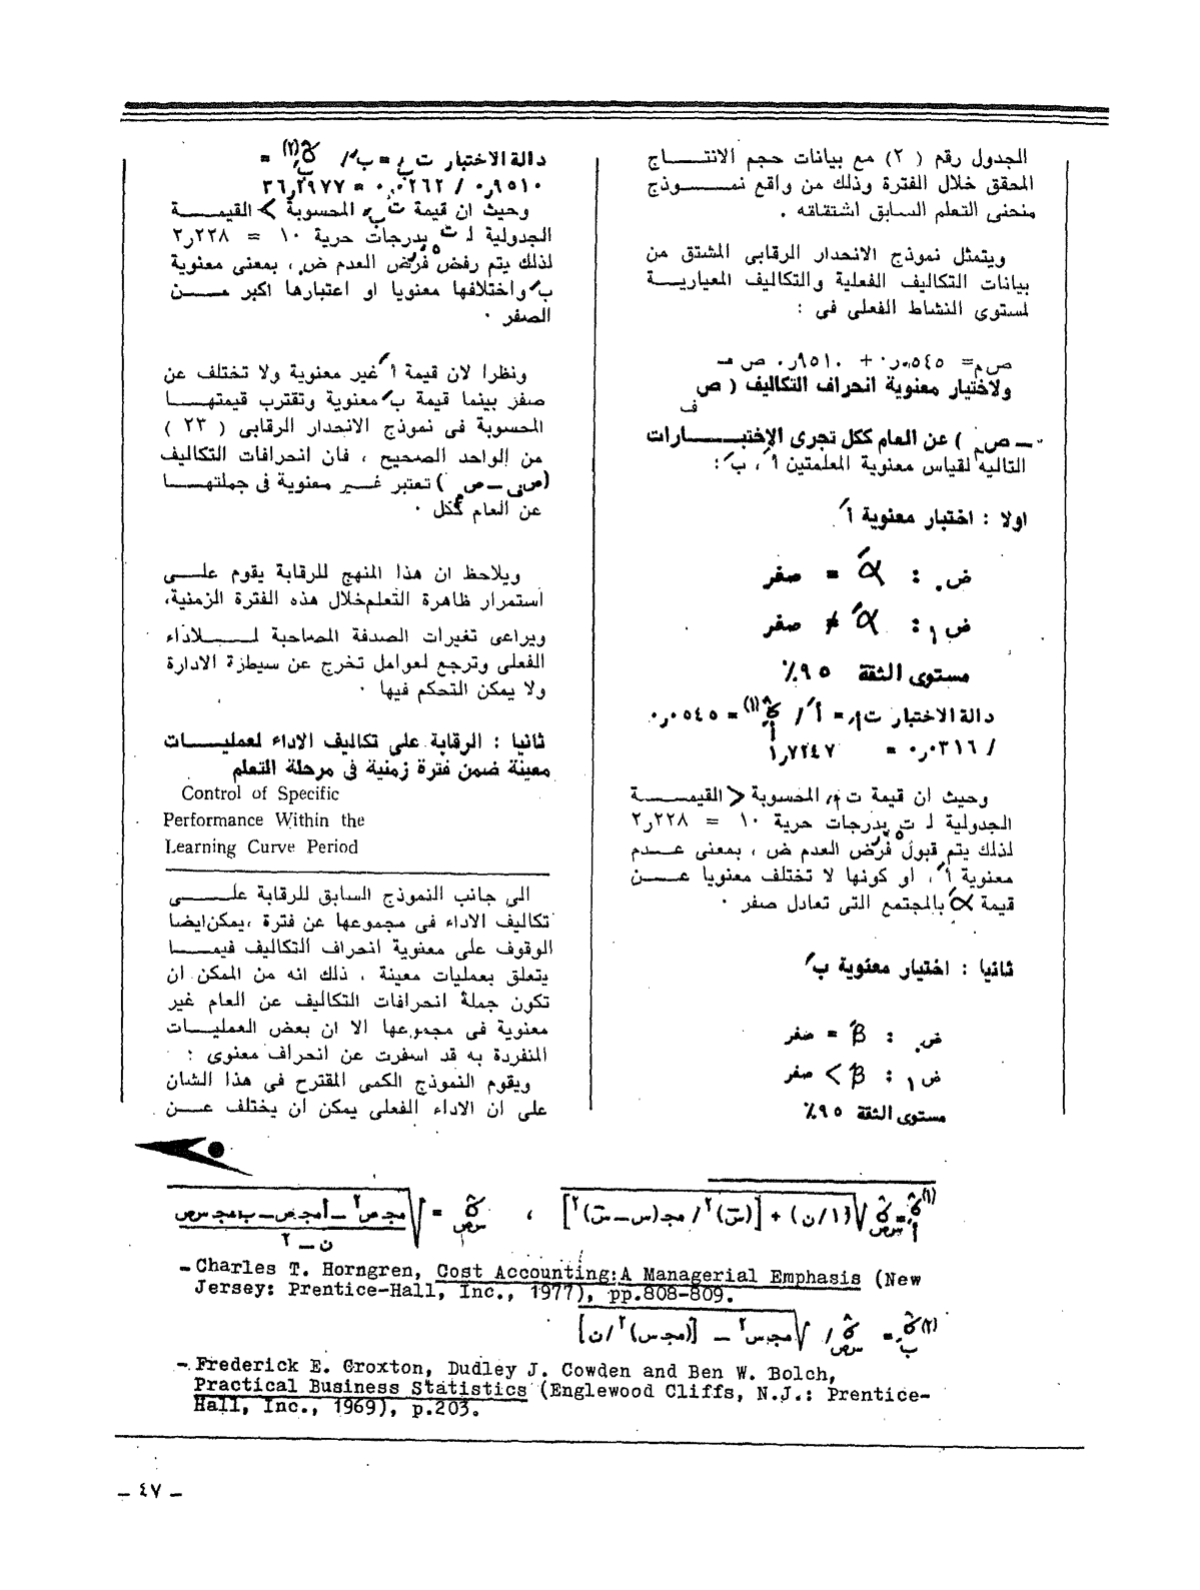 الجدول رقم ( ٢ ) مع بيانات حجم الانتاج
المحقق خلال الفترة وذلك من واقع نموذج
منحنى التعلم السابق اشتقاقه .
ويتمثل نموذج الانحدار الرقابى المشتق من
بيانات التكاليف الفعلية والتكاليف المعيارية
لمستوى النشاط الفعلى فى :
ص م = ٠٫٠٥٤٥ + ٠٫٩٥١٠ ص ف
ولاختبار معنوية انحراف التكاليف ( ص ف
- ص م ) عن العام ككل تجرى الاختبارات
التالية لقياس معنوية المعلمتين أَ ، بَ :
اولا : اختبار معنوية أَ
ض٠ : α´ = صفر
ض١ : α´ ≠ صفر
مستوى الثقة ٩٥٪
دالة الاختبار ت أ = أَ / σ̂ أ (١) = ٠٫٠٥٤٥
/ ٠٫٠٣١٦ = ١٫٧٢٤٧
وحيث ان قيمة ت أ المحسوبة < القيمة
الجدولية لـ ت بدرجات حرية ١٠ = ٢٫٢٢٨
لذلك يتم قبول فرض العدم ض٠ ، بمعنى عدم
معنوية أَ ، او كونها لا تختلف معنويا عن
قيمة α´ بالمجتمع التى تعادل صفر .
ثانيا : اختبار معنوية بَ
ض٠ : β´ = صفر
ض١ : β´ > صفر
مستوى الثقة ٩٥٪
دالة الاختبار ت ب = بَ / σ̂ ب (٢) =
٠٫٩٥١٠ / ٠٫٠٢٦٢ = ٣٦٫٢٩٧٧
وحيث ان قيمة ت ب المحسوبة > القيمة
الجدولية لـ ت بدرجات حرية ١٠ = ٢٫٢٢٨
لذلك يتم رفض فرض العدم ض٠ ، بمعنى معنوية
بَ واختلافها معنويا او اعتبارها اكبر من
الصفر .
ونظرا لان قيمة أَ غير معنوية ولا تختلف عن
صفر بينما قيمة بَ معنوية وتقترب قيمتها
المحسوبة فى نموذج الانحدار الرقابى ( ٢٣ )
من الواحد الصحيح ، فان انحرافات التكاليف
(ص ف - ص م ) تعتبر غير معنوية فى جملتها
عن العام ككل .
ويلاحظ ان هذا المنهج للرقابة يقوم على
استمرار ظاهرة التعلم خلال هذه الفترة الزمنية،
ويراعى تغيرات الصدفة المصاحبة للاداء
الفعلى وترجع لعوامل تخرج عن سيطرة الادارة
ولا يمكن التحكم فيها .
ثانيا : الرقابة على تكاليف الاداء لعمليات
معينة ضمن فترة زمنية فى مرحلة التعلم
Control of Specific
Performance Within the
Learning Curve Period
الى جانب النموذج السابق للرقابة على
تكاليف الاداء فى مجموعها عن فترة ،يمكن ايضا
الوقوف على معنوية انحراف التكاليف فيما
يتعلق بعمليات معينة ، ذلك انه من الممكن ان
تكون جملة انحرافات التكاليف عن العام غير
معنوية فى مجموعها الا ان بعض العمليات
المنفردة به قد اسفرت عن انحراف معنوى :
ويقوم النموذج الكمى المقترح فى هذا الشان
على ان الاداء الفعلى يمكن ان يختلف عن
(١) σ̂ أ = σ̂ س ص √(١/ن) + [(س̄)٢ / مجـ(س-س̄)٢] ، σ̂ س ص = √ مجـ ص٢ - أ مجـ ص - ب مجـ س ص
ن - ٢
- Charles T. Horngren, Cost Accounting:A Managerial Emphasis (New
Jersey: Prentice-Hall, Inc., 1977), pp.808-809.
(٢) σ̂ ب = σ̂ س ص / √ مجـ س٢ - [(مجـ س)٢ /ن]
- Frederick E. Croxton, Dudley J. Cowden and Ben W. Bolch,
Practical Business Statistics (Englewood Cliffs, N.J.: Prentice-
Hall, Inc., 1969), p.203.
- ٤٧ -